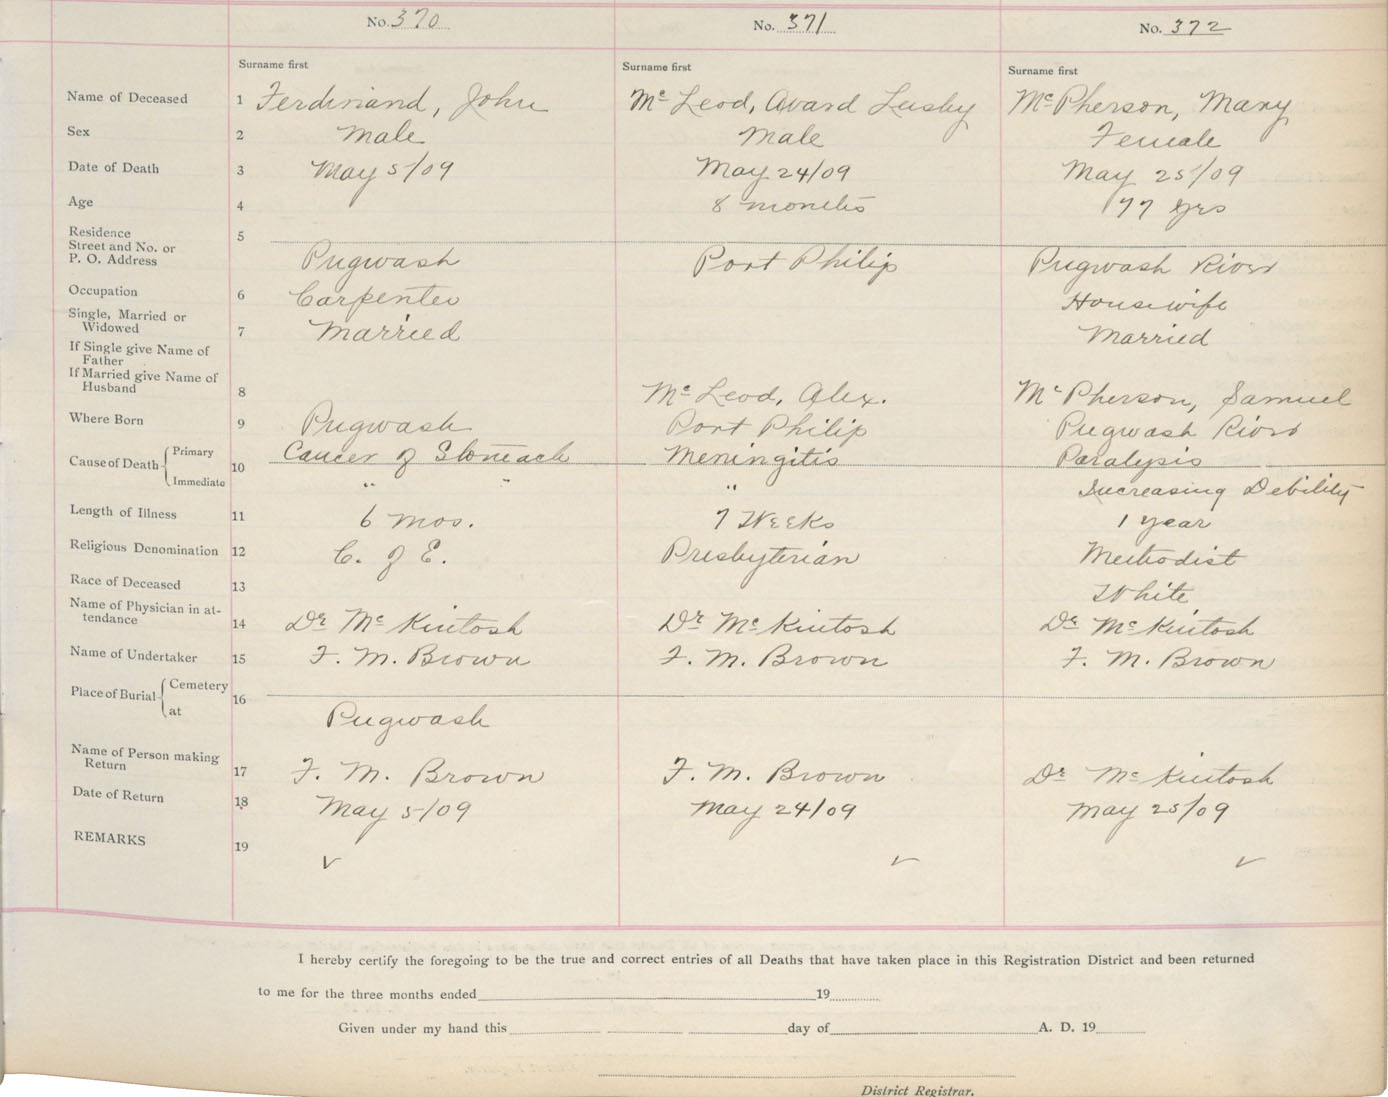 No. 370 No. 371 No. 372
Surname first Surname first Surname first
Name of Deceased 1 Ferdinand, John McLeod, Avard Lusby McPherson, Mary
Sex 2 Male Male Female
Date of Death 3 May 5/09 May 24/09 May 25/09
Age 4 8 months 77 yrs
Residence
Street and No. or
P. O. Address 5 Pugwash Port Philip Pugwash River
Occupation 6 Carpenter Housewife
Single, Married or
Widowed 7 Married Married
If Single give Name of
Father
If Married give Name of
Husband 8 McLeod, Alex. McPherson, Samuel
Where Born 9 Pugwash Port Philip Pugwash River
Cause of Death Primary 10 Cancer of Stomeach Meningitis Paralysis
Immediate " " " Increasing Debility
Length of Illness 11 6 mos. 7 Weeks 1 year
Religious Denomination 12 C. of E. Presbyterian Methodist
Race of Deceased 13 White
Name of Physician in at-
tendance 14 Dr McKintosh Dr McKintosh Dr McKintosh
Name of Undertaker 15 F. M. Brown F. M. Brown F. M. Brown
Place of Burial Cemetery 16
at Pugwash
Name of Person making
Return 17 F. M. Brown F. M. Brown Dr McKintosh
Date of Return 18 May 5/09 May 24/09 May 25/09
REMARKS 19 ✓ ✓ ✓
I hereby certify the foregoing to be the true and correct entries of all Deaths that have taken place in this Registration District and been returned
to me for the three months ended 19
Given under my hand this day of A. D. 19
District Registrar.